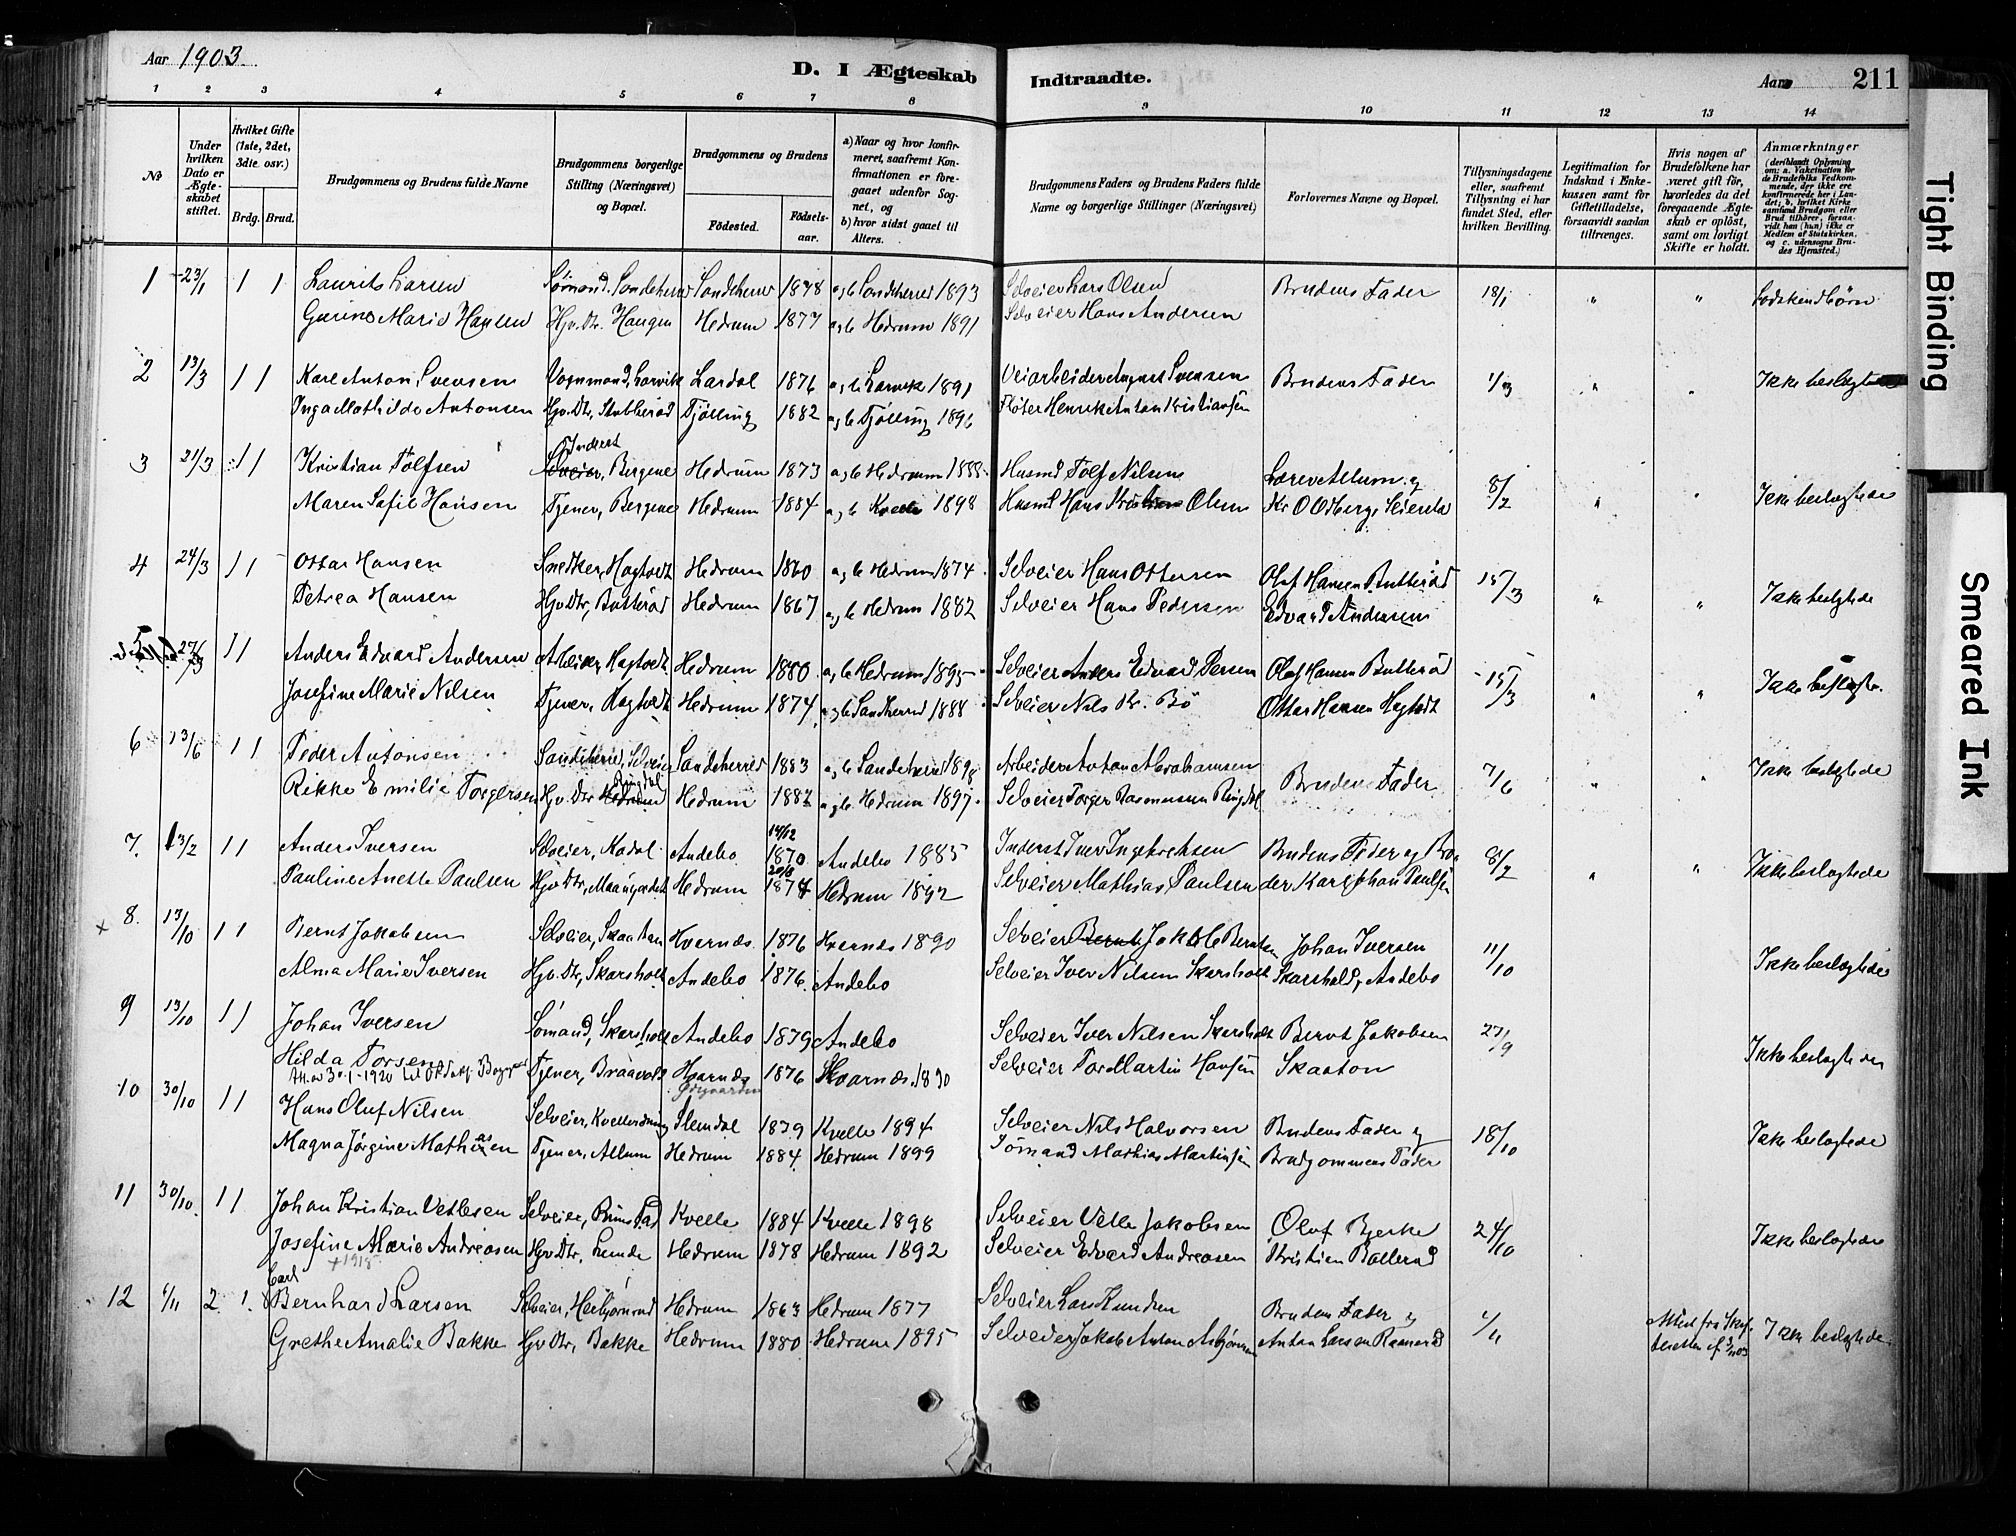 Aar 1903.
D. I Ægteskab Indtraadte.
Aar 211
1 2 3 4 5 6 7 8 9 10 11 12 13 14
No
Under hvilken Dato er Ægteskabet stiftet.
Hvilket Gifte (1ste, 2det, 3die osv.)
Brdg. Brud.
Brudgommens og Brudens fulde Navne
Brudgommens borgerlige Stilling (Næringsvei) og Bopæl.
Brudgommens og Brudens
Fødested. Fødselsaar.
a) Naar og hvor konfirmeret, saafremt Konfirmationen er foregaaet udenfor Sognet, og
b) hvor sidst gaaet til Alters.
Brudgommens Faders og Brudens Faders fulde Navne og borgerlige Stillinger (Næringsvei)
Forlovernes Navne og Bopæl.
Tillysningsdagene eller, saafremt Tillysning ei har fundet Sted, efter hvilken Bevilling.
Legitimation for Indskud i Enkekassen samt for Giftetilladelse, forsaavidt saadan tiltrænges.
Hvis nogen af Brudefolkene har været gift før, hvorledes da det foregaaende Ægteskab er opløst, samt om lovligt Skifte er holdt.
Anmærkninger (deriblandt Oplysning om: a. Vakcination for de Brudefolks Vedkommende, der ikke ere konfirmerede her i Landet; b. hvilket Kirkesamfund Brudgom eller Brud tilhører, forsaavidt han (hun) ikke er Medlem af Statskirken, og c. udensogns Brudes Hjemsted.)
1 23/1 1 1 Laurits Larsen Sømand, Sandeherred Sandeherred 1878 a, b Sandeherred 1893 Selveier Lars Olsen Brudens Fader 18/1 " " Sødskendbørn
Gurine Marie Hansen Hjv. Dtr. Haugen Hedrum 1877 a, b Hedrum 1891 Selveier Hans Andersen
2 13/3 1 1 Karl Anton Svensen Vognmand, Larvik Lardal 1876 a, b Larvik 1891 Veiarbeider August Svensen Brudens Fader 1/3 " " Ikke beslægtede
Inga Mathilde Antonsen Hjv. Dtr, Stubberød Tjølling 1882 a, b Tjølling 1896 Fløter Henrik Anton Kristiansen
3 21/3 1 1 Kristian Tolfsen Inderst Selveier, Bergene Hedrum 1873 a, b Hedrum 1888 Husmd Tolf Nilsen Lærer Allum og 8/2 " "
Maren Sofie Hansen Tjener, Bergene Hedrum 1884 a, b Kvelle 1898 Husmd Hans Kristian Olsen Kr O Odberg, Seierda Ikke beslægtede
4 24/3 1 1 Ottar Hansen Snedker, Hagtvedt Hedrum 1860 a, b Hedrum 1874 Selveier Hans Ottersen Olaf Hansen Butterød 15/3 " " Ikke beslægtede
Petrea Hansen Hjv Dtr, Butterød Hedrum 1867 a, b Hedrum 1882 Selveier Hans Pedersen Edvard Andersen
5 27/3 1 1 Anders Edvard Andersen Arbeider, Hagtvedt Hedrum 1880 a, b Hedrum 1895 Selveier Anders Edvard Persen Olaf Hansen Butterød 15/3 " " Ikke beslægte.
Josefine Marie Nilsen Tjener, Hagtvedt Hedrum 1874 a, b Sandherred 1888 Selveier Nils Kr. Bø Ottar Hansen Hagtvedt
6 13/6 1 1 Peder Antonsen Sandeherred, Selveier Sandeherred 1883 a, b Sandeherred 1898 Arbeider Anton Abrahamsen Brudens Fader 7/6 " " Ikke beslægtede
Rikke Emilie Torgersen Hjv. Dtr Hedrum Ringdal Hedrum 1882 a, b Hedrum 1897 Selveier Torger Rasmussen Ringdal
7. 13/2 1 1 Anders Iversen Selveier, Kodal Andebo 14/12 1870 Andebo 1885 Inderst Iver Ingebretsen Brudens Fader og Bro- 8/2 " " Ikke beslægtede
Pauline Anette Paulsen Hjv Dtr, Maangaardet Hedrum 20/8 1877 Hedrum 1892 Selveier Mathias Paulsen der Karl Johan Paulsen
x 8. 13/10 1 1 Bernt Jakobsen Selveier, Skaatan Hvarnæs 1876 Hvarnæs 1890 Selveier Bernt Jakob Berntsen Johan Iversen 11/10
Alma Marie Iversen Hjv. Dtr, Skarsholt Andebo 1876. Andebo Selveier Iver Nilsen Skarsholt Skarshold, Andebo Ikke beslægtede
9 13/10 1 1 Johan Iversen Sømand, Skarsholt Andebo 1879 Andebo Selveier Iver Nilsen Skarsholt Bernt Jakobsen 27/9
Hilda Torsen Tjener, Braavold Hvarnæs 1876 Hvarnæs 1890 Selveier Tor Martin Hansen Skaaton Ikke beslægtede
10 30/10 1 1 Hans Oluf Nilsen Selveier, Kvelle Slemdal 1879 Kvelle 1894 Selveier Nils Halvorsen Brudens Fader og 18/10 Ikke beslægtede
Magna Jørgine Mathisen Tjener, Allum Hedrum 1884 Hedrum 1899 Sømand Mathias Martinsen Brudgommens Fader
11 30/10. 1 1 Johan Kristian Vetlesen Selveier, Rimstad Kvelle 1884 Kvelle 1898 Selveier Vetle Jakobsen Olaf Bjerke 24/10
Josefine Marie Andreasen Hjv Dtr, Lunde Hedrum 1878 Hedrum 1892 Selveier Edvard Andreasen Kristian Bollerød Ikke beslægtede
+1918
12 6/11 2. 1. Carl Bernhard Larsen Selveier, Heibjørnrød Hedrum 1863 Hedrum 1877 Selveier Lars Knudsen Brudens Fader og 1/11
Grethe Amalie Bakke Hjv Dtr, Bakke Hedrum 1880 Hedrum 1895 Selveier Jakob Anton Asbjørnsen Anton Larsen Ramsrød Attest fra Skifteretten af 3/11 03 Ikke beslægtede
Tight Binding
Smeared Ink